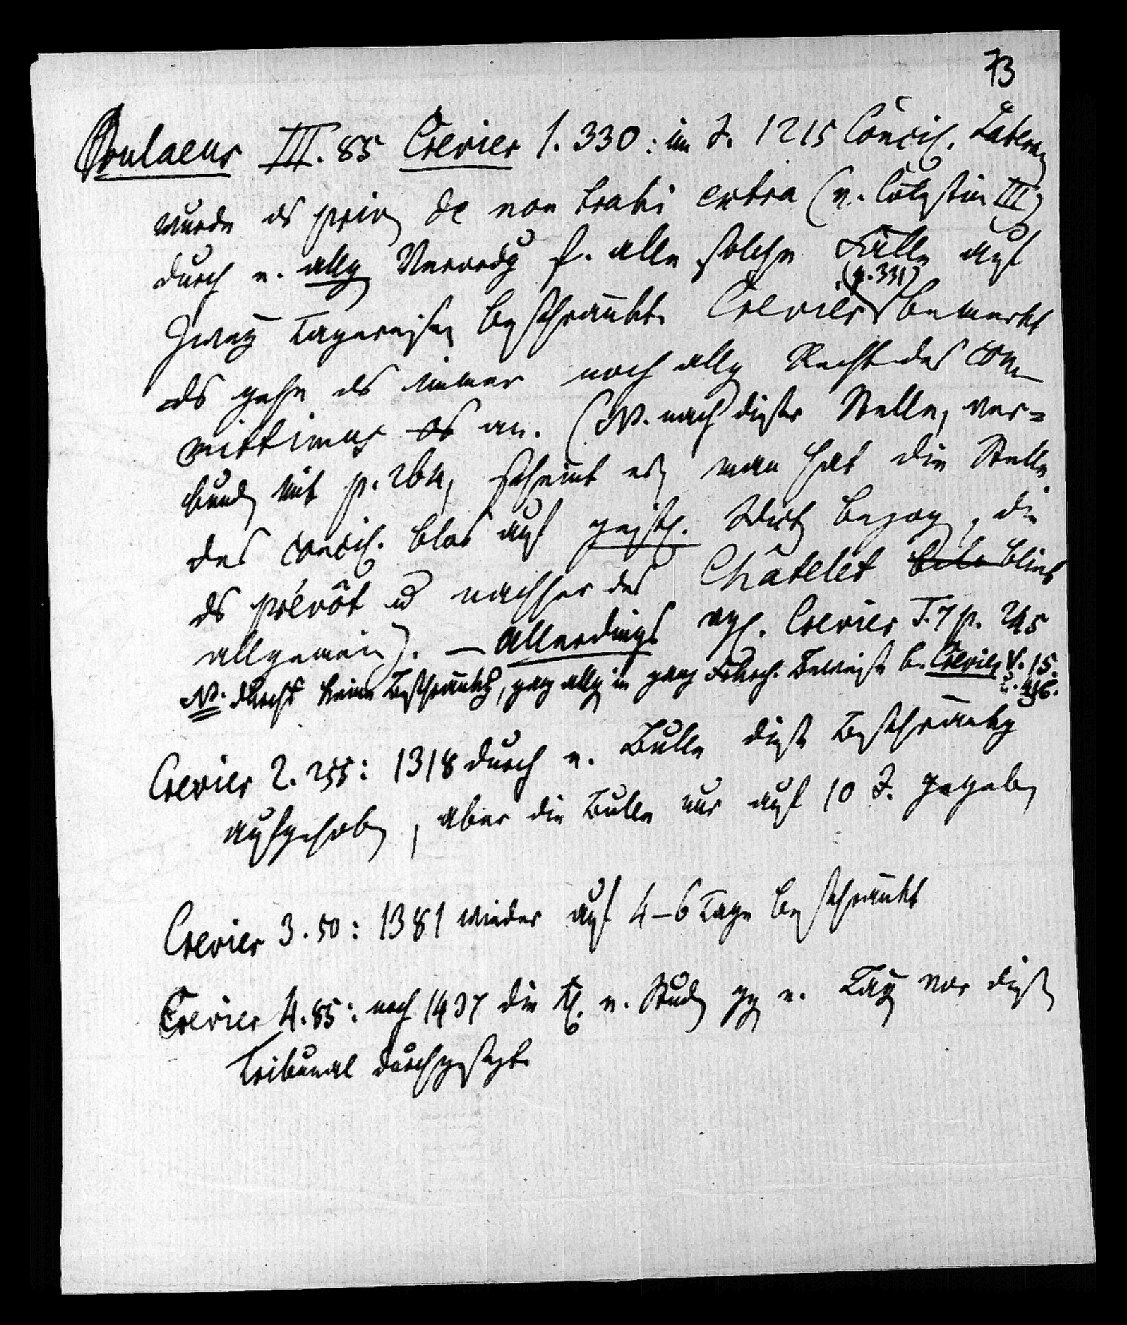 73
Bulaeus III. 85 Crevier 1. 330: im J. 1215 Concil. Lateran
wurde ds priv de non trahi extra (v. Cölestin III)
durch e. allg Verordg f. alle solche Fälle auf
zwey Tagereisen beschränkt. Crevier (p. 331) bemerkt
ds gehe ds immer noch allg Recht des com
mittimus an. (NB. nach dieser Stelle, ver=
bund mit p. 264, scheint es, man hat die Stelle
des Concil. blos auf geistl. bezog, die
ds prévôt u nachher des Châtelet blieb
allgemein). — Allerdings vgl. Crevier T. 7 p. 245
NB. keine Beschränkg, ganz allg in Beweise b. Crevier V. 15.
Crevier 2. 255: 1318 durch e. Bulle diese Beschränkg
aufgehoben, aber die Bulle nur auf 10 J. gegeben
Crevier 3. 50: 1381 wieder auf 4–6 Tage beschränkt
Crevier 4. 85: noch 1437 die Kl. e. Stud gg e. Lay vor diesem
Tribunal durchgesetzt